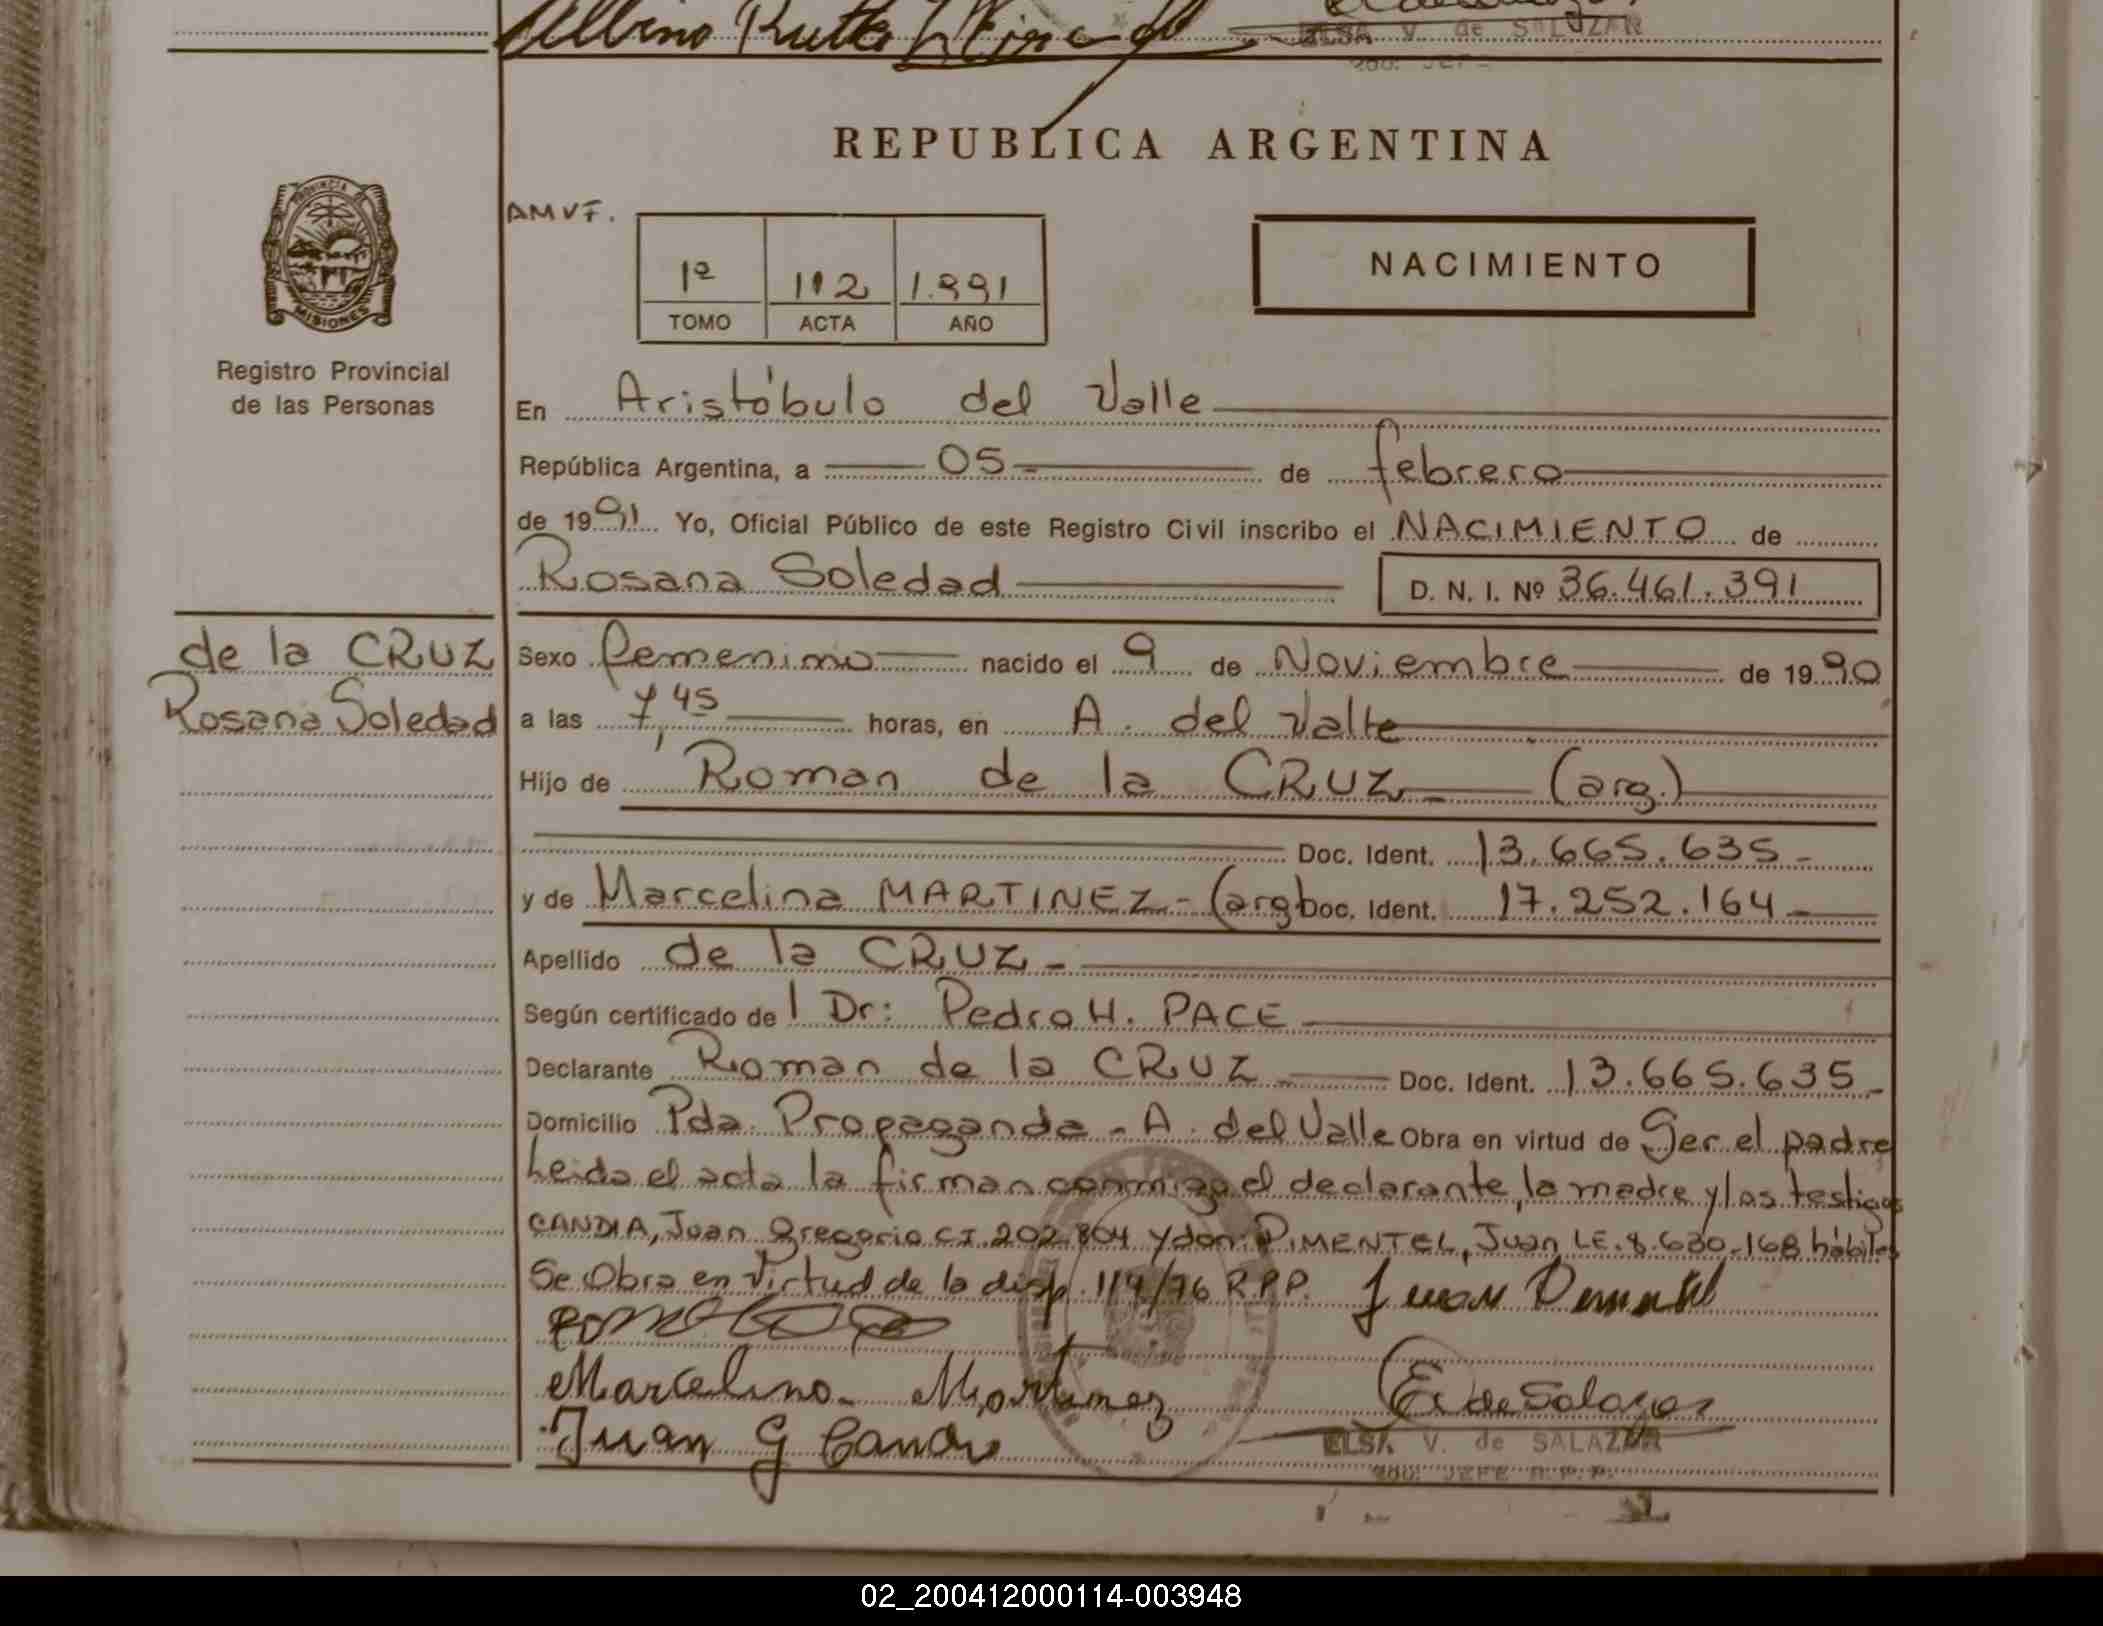 Albino
ELSA V. de SALAZAR
2do. JEFE
REPUBLICA ARGENTINA
PROVINCIA DE
MISIONES
Registro Provincial
de las Personas
AMVF.
1º 112 1.991
TOMO ACTA AÑO
NACIMIENTO
En Aristóbulo del Valle
República Argentina, a 05 de febrero
de 1991 Yo, Oficial Público de este Registro Civil inscribo el NACIMIENTO de
Rosana Soledad D. N. I. Nº 36.461.391
de la CRUZ
Rosana Soledad
Sexo femenino nacido el 9 de Noviembre de 1990
a las 7,45 horas, en A. del Valle
Hijo de Roman de la CRUZ (arg.)
Doc. Ident. 13.665.635-
y de Marcelina MARTINEZ- (arg) Doc. Ident. 17.252.164-
Apellido de la CRUZ-
Según certificado de l Dr: Pedro H. PACE
Declarante Roman de la CRUZ Doc. Ident. 13.665.635-
Domicilio Pda. Propaganda - A. del Valle Obra en virtud de Ser el padre
Leida el acta la firman conmigo el declarante, la madre y los testigos
CANDIA, Juan Gregorio CI. 202.804 y don: PIMENTEL, Juan LE. 8.630.168 hábiles
Se Obra en virtud de la disp. 114/76 R.P.P. Juan Pimentel
Marcelina Martinez E. de Salazar
Juan G Candia ELSA V. de SALAZAR
2do. JEFE R.P.P.
02_200412000114-003948